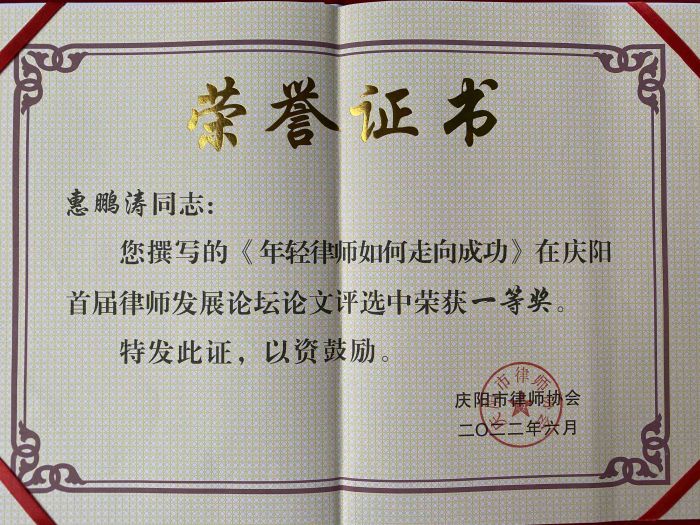 荣誉证书
惠鹏涛同志：
您撰写的《年轻律师如何走向成功》在庆阳
首届律师发展论坛论文评选中荣获一等奖。
特发此证，以资鼓励。
庆阳市律师协会
二〇二二年六月